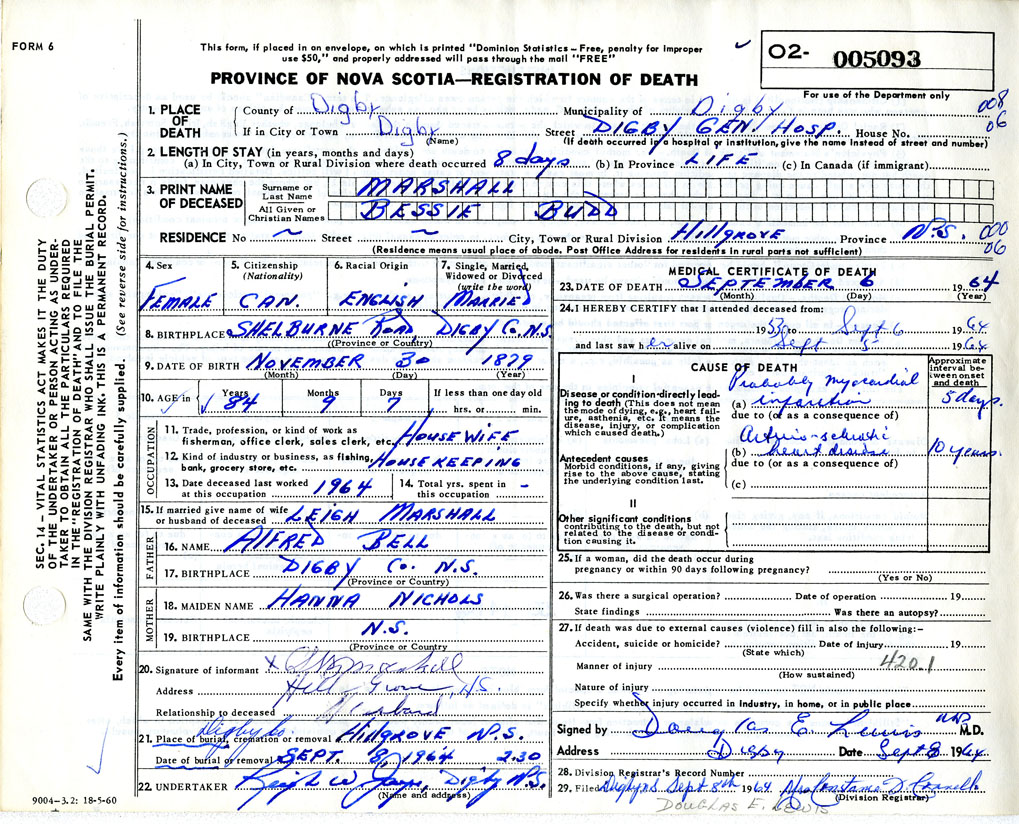 FORM 6
This form, if placed in an envelope, on which is printed "Dominion Statistics – Free, penalty for improper
use $50," and properly addressed will pass through the mail "FREE"
PROVINCE OF NOVA SCOTIA—REGISTRATION OF DEATH
02- 005093
For use of the Department only
008
06
1. PLACE OF DEATH
County of Digby Municipality of Digby
If in City or Town Digby Street DIGBY GEN. HOSP. House No.
(Name) (If death occurred in a hospital or institution, give the name instead of street and number)
2. LENGTH OF STAY (in years, months and days)
(a) In City, Town or Rural Division where death occurred 8 days (b) In Province LIFE (c) In Canada (if immigrant)
3. PRINT NAME OF DECEASED
Surname or Last Name MARSHALL
All Given or Christian Names BESSIE BUDD
RESIDENCE No ~ Street ~ City, Town or Rural Division Hillgrove Province N.S. 000
06
(Residence means usual place of abode. Post Office Address for residents in rural parts not sufficient)
4. Sex FEMALE
5. Citizenship (Nationality) CAN.
6. Racial Origin ENGLISH
7. Single, Married, Widowed or Divorced (write the word) MARRIED
8. BIRTHPLACE SHELBURNE ROAD, DIGBY CO. N.S.
(Province or Country)
9. DATE OF BIRTH NOVEMBER 30 1879
(Month) (Day) (Year)
10. AGE in Years 84 Months 9 Days 7 If less than one day old
hrs. or min.
OCCUPATION
11. Trade, profession, or kind of work as
fisherman, office clerk, sales clerk, etc. HOUSEWIFE
12. Kind of industry or business, as fishing,
bank, grocery store, etc. HOUSEKEEPING
13. Date deceased last worked
at this occupation 1964
14. Total yrs. spent in
this occupation –
15. If married give name of wife
or husband of deceased LEIGH MARSHALL
FATHER
16. NAME ALFRED BELL
17. BIRTHPLACE DIGBY CO. N.S.
(Province or Country)
MOTHER
18. MAIDEN NAME HANNA NICHOLS
19. BIRTHPLACE N.S.
(Province or Country)
20. Signature of informant X
Address Hill Grove, N.S.
Relationship to deceased Husband
Digby Co.
21. Place of burial, cremation or removal Hillgrove N.S.
Date of burial or removal SEPT. 8, 1964 2.30
22. UNDERTAKER W. Digby N.S.
(Name and address)
9004–3.2: 18-5-60
MEDICAL CERTIFICATE OF DEATH
23. DATE OF DEATH SEPTEMBER 6 1964
(Month) (Day) (Year)
24. I HEREBY CERTIFY that I attended deceased from:
19 to Sept 6 1964
and last saw her alive on Sept 5 1964
CAUSE OF DEATH
Approximate interval between onset and death
I
Disease or condition directly leading to death (This does not mean the mode of dying, e.g., heart failure, asthenia, etc. It means the disease, injury, or complication which caused death.)
Probably myocardial
(a) infarction 5 days
due to (or as a consequence of)
Antecedent causes
Morbid conditions, if any, giving rise to the above cause, stating the underlying condition last.
Arterio-sclerotic
(b) heart disease 10 years
due to (or as a consequence of)
(c)
II
Other significant conditions
contributing to the death, but not related to the disease or condition causing it.
25. If a woman, did the death occur during
pregnancy or within 90 days following pregnancy?
(Yes or No)
26. Was there a surgical operation? Date of operation 19
State findings Was there an autopsy?
27. If death was due to external causes (violence) fill in also the following:–
Accident, suicide or homicide? Date of injury 19
(State which)
Manner of injury 420.1
(How sustained)
Nature of injury
Specify whether injury occurred in industry, in home, or in public place
Signed by Douglas E. Lewis MD M.D.
Address Digby Date Sept 8 1964
28. Division Registrar's Record Number
29. Filed Digby NS Sept 8th 1964 Mrs Constance
(Division Registrar)
DOUGLAS E. LEWIS
SEC. 14 – VITAL STATISTICS ACT MAKES IT THE DUTY
OF THE UNDERTAKER OR PERSON ACTING AS UNDER-
TAKER TO OBTAIN ALL THE PARTICULARS REQUIRED
IN THE "REGISTRATION OF DEATH" AND TO FILE THE
SAME WITH THE DIVISION REGISTRAR WHO SHALL ISSUE THE BURIAL PERMIT.
WRITE PLAINLY WITH UNFADING INK. THIS IS A PERMANENT RECORD.
Every item of information should be carefully supplied. (See reverse side for instructions.)